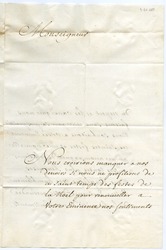 Monseigneur
Nous croirions manquer a nos
devoirs si nous ne profitions de
ce saint temps des festes de
la Noël pour renouveller a
Votre Eminence nos sentiments